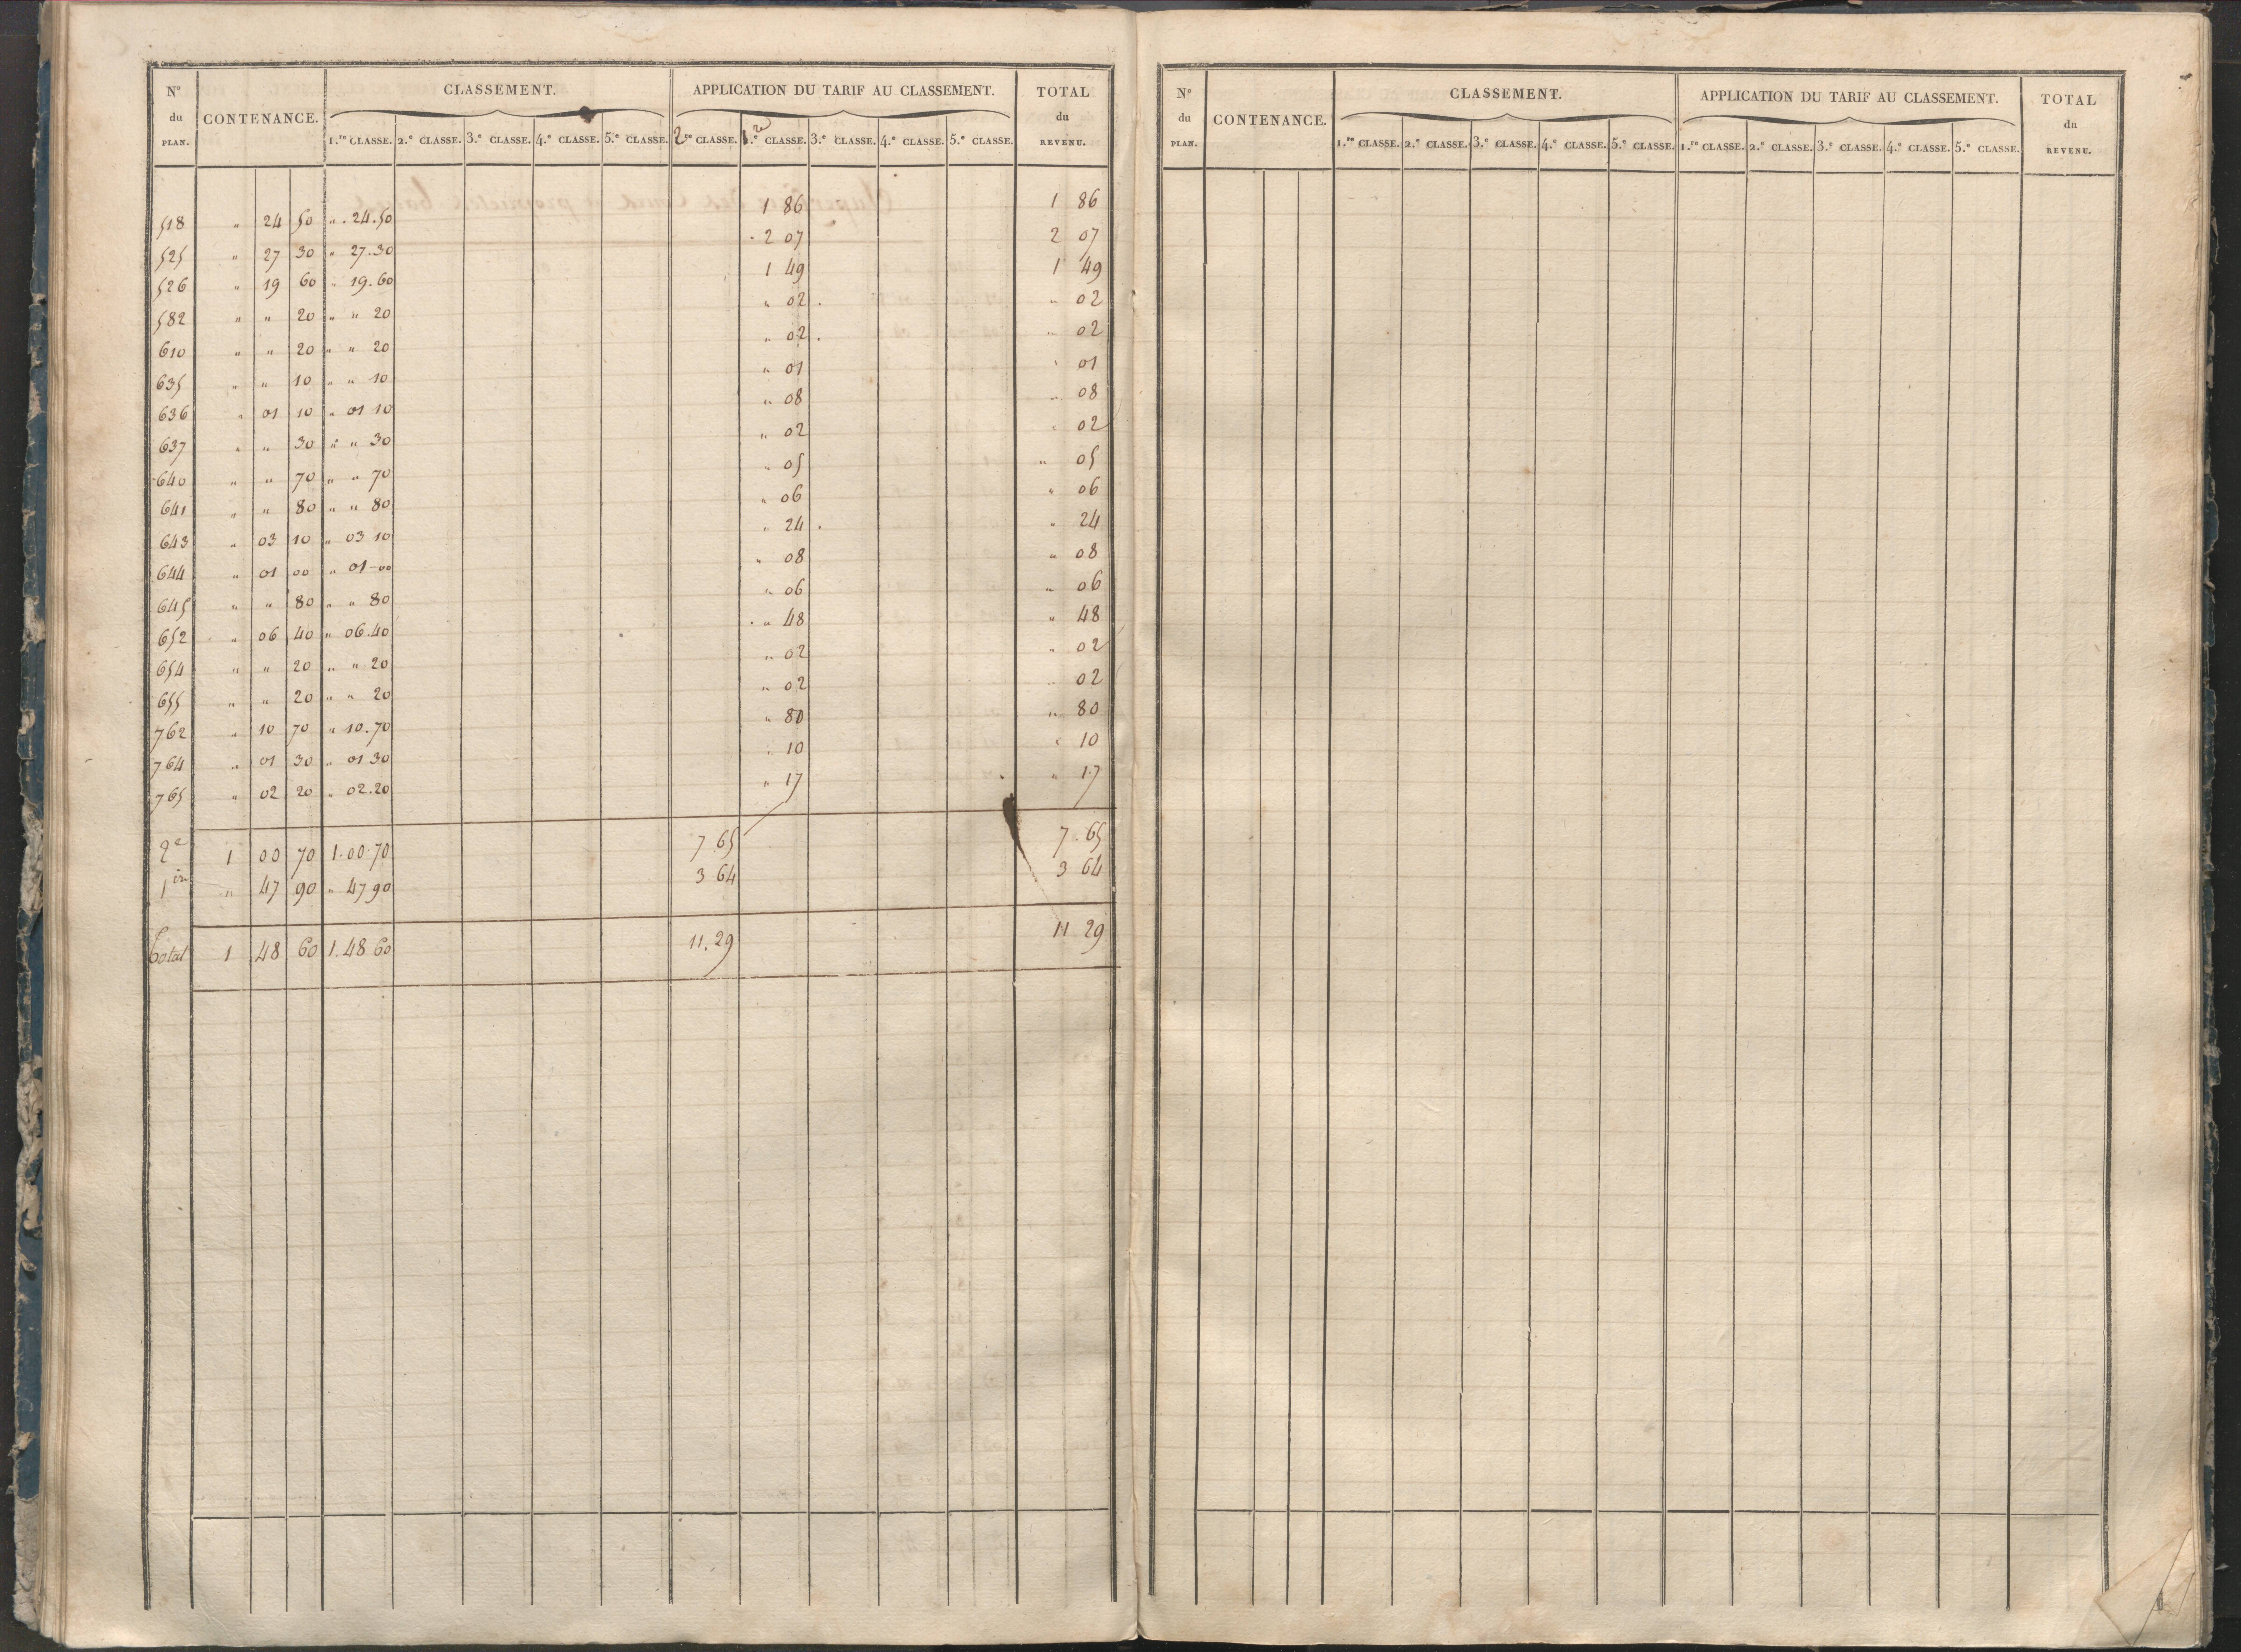 N° du PLAN. CONTENANCE. CLASSEMENT. APPLICATION DU TARIF AU CLASSEMENT. TOTAL du REVENU.
1.re CLASSE. 2.e CLASSE. 3.e CLASSE. 4.e CLASSE. 5.e CLASSE. 2re CLASSE. 1.e CLASSE. 3.e CLASSE. 4.e CLASSE. 5.e CLASSE.
518 " 24 50 " . 24.50 1 86 1 86
525 " 27 30 " 27.30 2 07 2 07
526 " 19 60 " 19.60 1 49 1 49
582 " " 20 " " 20 " 02 " 02
610 " " 20 " " 20 " 02 " 02
635 " " 10 " " 10 " 01 " 01
636 " 01 10 " 01 10 " 08 " 08
637 " " 30 " " 30 " 02 " 02
640 " " 70 " " 70 " 05 " 05
641 " " 80 " " 80 " 06 " 06
643 " 03 10 " 03 10 " 24 " 24
644 " 01 00 " 01-00 " 08 " 08
645 " " 80 " " 80 " 06 " 06
652 " 06 40 " 06.40 " 48 " 48
654 " " 20 " " 20 " 02 " 02
655 " " 20 " " 20 " 02 " 02
762 " 10 70 " 10.70 " 80 " 80
764 " 01 30 " 01 30 " 10 " 10
765 " 02 20 " 02.20 " 17 " 17
2e 1 00 70 1.00.70 7 65 7.65
1ere " 47 90 " 47 90 3 64 3 64
Total 1 48 60 1.48 60 11.29 11 29
N° du PLAN. CONTENANCE. CLASSEMENT. APPLICATION DU TARIF AU CLASSEMENT. TOTAL du REVENU.
1.re CLASSE. 2.e CLASSE. 3.e CLASSE. 4.e CLASSE. 5.e CLASSE. 1.re CLASSE. 2.e CLASSE. 3.e CLASSE. 4.e CLASSE. 5.e CLASSE.